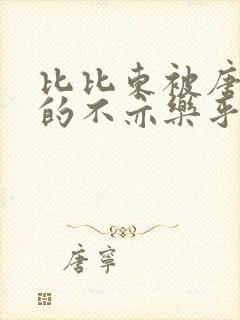 比比东被唐
的不亦樂乎
唐寧